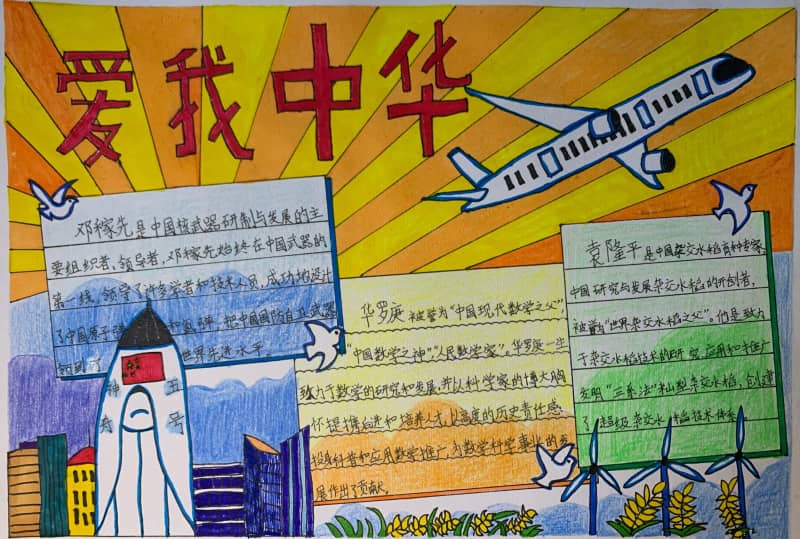 爱我中华
邓稼先是中国核武器研制与发展的主
要组织者、领导者,邓稼先始终在中国武器的
第一线,领导了许多学者和技术人员,成功地设计
了中国原子弹和氢弹,把中国国防自卫武器
领到了世界先进水平。
神五
舟号
华罗庚被誉为“中国现代数学之父”,
“中国数学之神”“人民数学家”。华罗庚一生
致力于数学的研究和发展,并以科学家的博大胸
怀提携后进和培养人才,以高度的历史责任感
投身科普和应用数学推广,为数学科学事业的发
展作出了贡献。
袁隆平是中国杂交水稻育种专家,
中国研究与发展杂交水稻的开创者,
被誉为“世界杂交水稻之父”。他是致力
于杂交水稻技术的研究、应用和于推广
发明“三系法”籼型杂交水稻,创建
了超级杂交水稻技术体系。